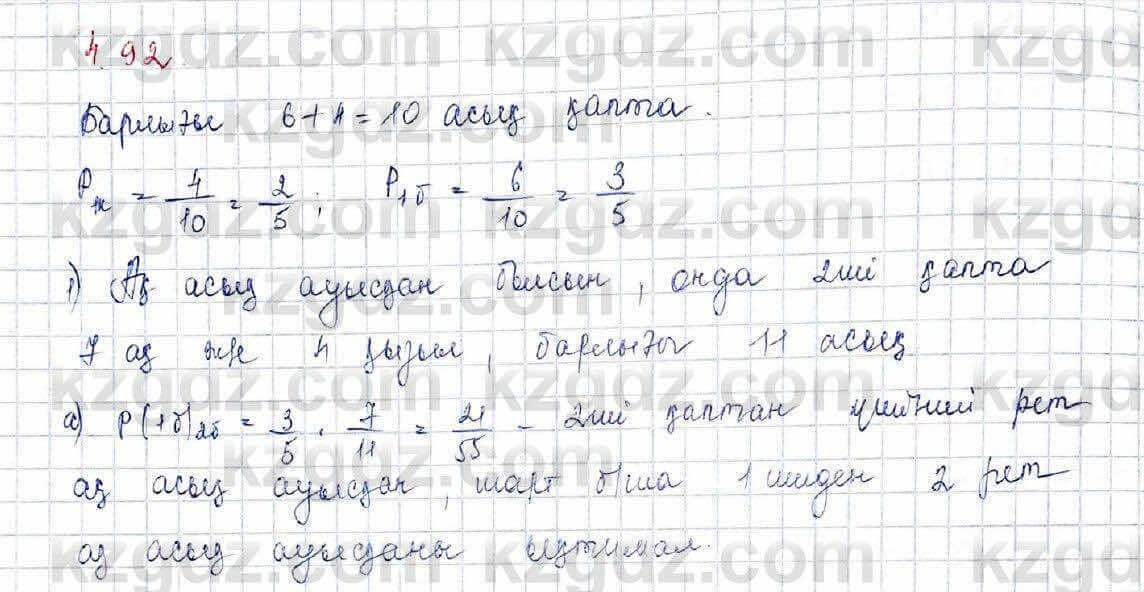 4.92.
Барлығы 6+4=10 асық қапта.
Pж = 4/10 = 2/5 ; P1б = 6/10 = 3/5
1) Ақ асық ауысқан болсын, онда 2ші қапта
7 ақ және 4 қызыл, барлығы 11 асық
a) P(1б)2б = 3/5 · 7/11 = 21/55 – 2ші қаптан рет
ақ асық ауысқан, шарт б/ша 1 шіден 2 рет
ақ асық ауысқаны ықтимал.
kzgdz.com